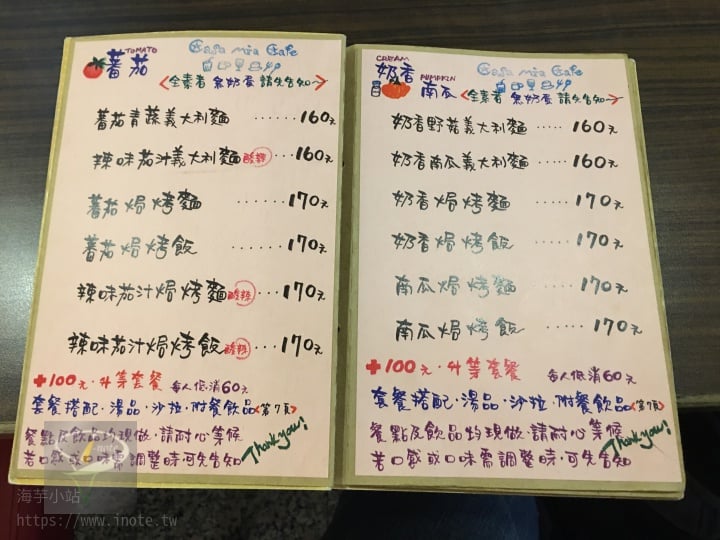 TOMATO
蕃茄
Casa mia Cafe
<全素者 無奶蛋 請先告知~>
蕃茄青蔬義大利麵 ······ 160元
辣味茄汁義大利麵 酸辣 ··· 160元
蕃茄焗烤麵 ····· 170元
蕃茄焗烤飯 ······· 170元
辣味茄汁焗烤麵 酸辣 ··· 170元
辣味茄汁焗烤飯 酸辣 ··· 170元
+100元·升等套餐 每人低消60元
套餐搭配·湯品·沙拉·附餐飲品<第7頁>
餐點及飲品均現做·請耐心等候
若口感或口味需調整時·可先告知
Thank you!
CREAM
奶香
PUMPKIN
南瓜
Casa mia Cafe
<全素者 無奶蛋 請先告知~>
奶香野菇義大利麵 ····· 160元
奶香南瓜義大利麵 ····· 160元
奶香焗烤麵 ····· 170元
奶香焗烤飯 ····· 170元
南瓜焗烤麵 ····· 170元
南瓜焗烤飯 ····· 170元
+100元·升等套餐 每人低消60元
套餐搭配·湯品·沙拉·附餐飲品<第7頁>
餐點及飲品均現做·請耐心等候
若口感或口味需調整時·可先告知
Thank you!
海芋小站
https://www.inote.tw